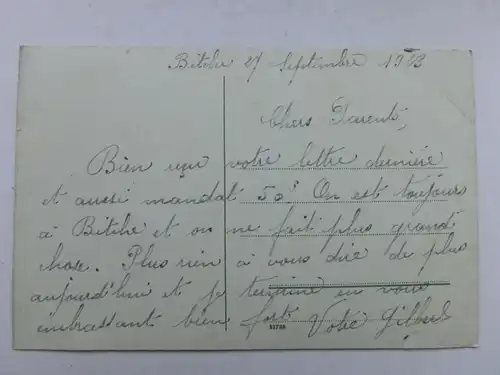 Bitche 27 Septembre 1923
Chers Parents,
Bien reçu votre lettre dernière
et aussi mandat 50f. On est toujours
à Bitche et on ne fait plus grand
chose. Plus rien à vous dire de plus
aujourd'hui et je termine en vous
embrassant bien fort. Votre Gilbert